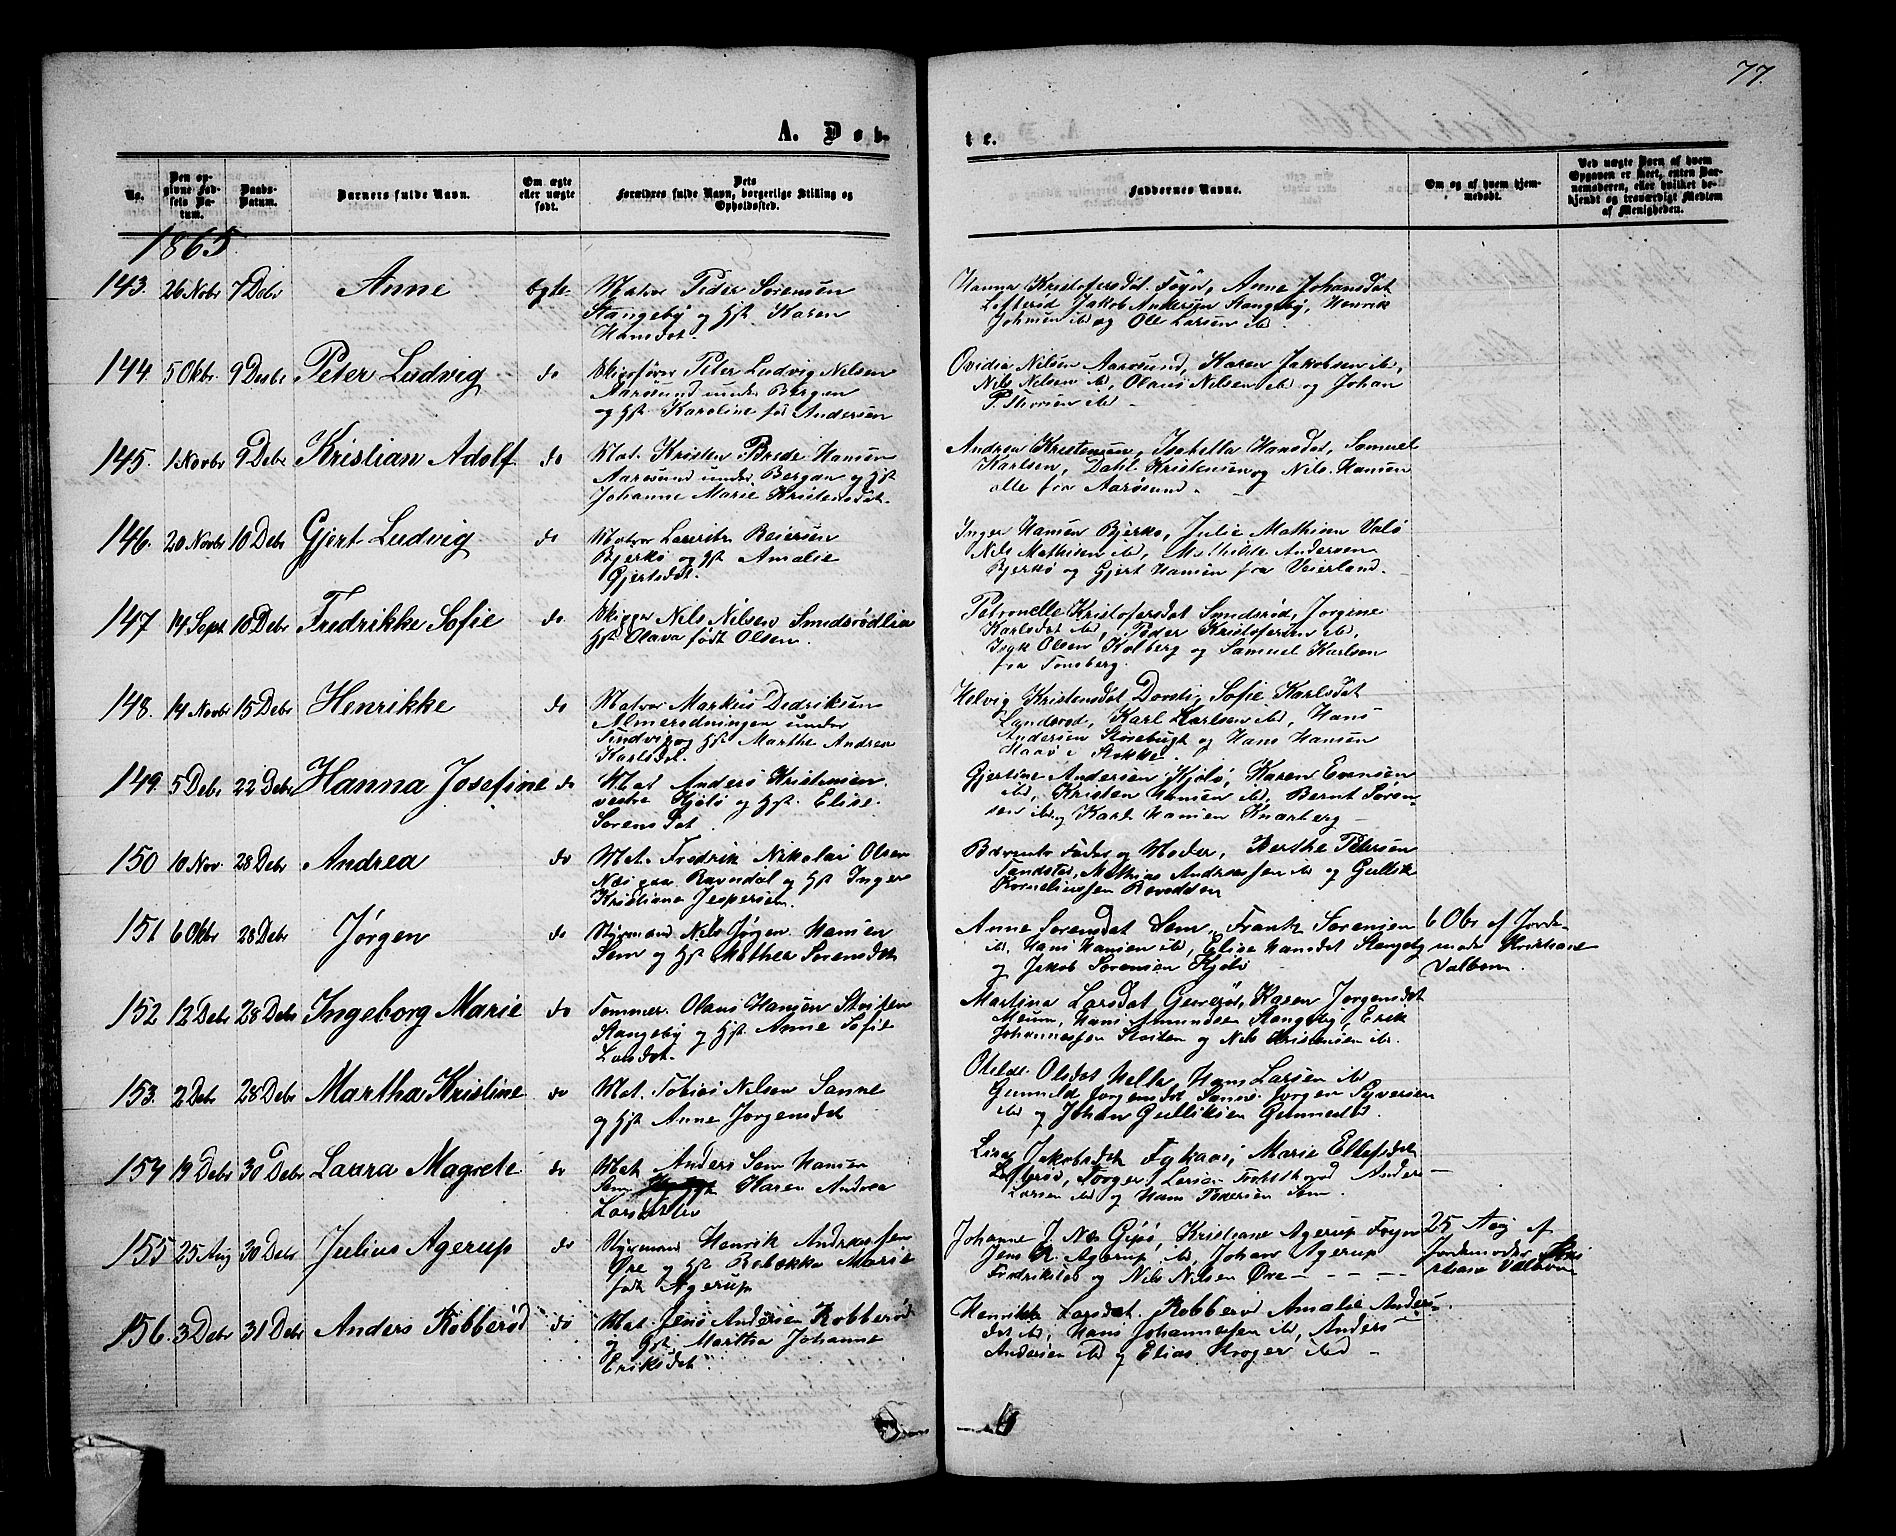 77.
A. Døb-
te.
No.
Den opgivne Fødsels Datum.
Daabs-Datum.
Barnets fulde Navn.
Om ægte eller uægte født.
Dets Forældres fulde Navn, borgerlige Stilling og Opholdssted.
Faddernes Navne.
Om og af hvem hjemmedøbt.
Ved uægte Barn af hvem Opgaven er skeet, enten Barnemoderen, eller hvilket bekjendt og troværdigt Medlem af Menigheden.
1865.
143. 26 Novbr 7 Debr Anne Egte. Matros Peder Sørensen
Stangeby og Hst. Karen
Hansdat.
Hanna Kristofersdat. Føyn, Anne Johansdat
Lofterød, Jakob Andersen Stangeby, Henrik
Johnsen ibd og Ole Larsen ibd.
144. 5 Okbr. 9 Desbr Peter Ludvig do Skipsfører Peter Ludvig Nilsen
Aarøsund under Bergan
og Hst. Karoline fød Andersen
Ovidia Nilsen Aarøsund, Karen Jakobsen ibd,
Nils Nilsen ibd, Olaus Nilsen ibd og Johan
P. Thorsen ibd -
145. 1 Novbr 9 Debr Kristian Adolf do Mat. Kristen Brede Hansen
Aarøsund under Bergan og Hst
Johanne Marie Kristensdat.
Andrea Kristensen, Isabella Hansdat, Samuel
Karlsen, Dahl Kristensen og Nils Hansen
alle fra Aarøsund.
146. 20 Novbr 10 Debr Gjert Ludvig do Matros Lauritz Reiersen
Bjerkø og Hst Amalie
Gjertsdat.
Inger Hansen Bjerkø, Julie Mathisen Valø
Nils Mathisen ibd, Mathilde Andersen
Bjerkø og Gjert Hansen fra Veierland.
147 14 Sept 10 Debr Fredrikke Sofie do Skipper Nils Nilsen Smidsrødlia
Hst Olava født Olsen.
Petronelle Kristofersdat Smidsrød, Jorgine
Karlsdat ibd, Peder Kristofersen ibd,
Isak Olsen Kolberg og Samuel Karlsen
fra Tønsberg.
148. 14 Novbr 15 Debr Henrikke do Matros Markus Dedriksen
Almerødningen under
og Hst Marthe Andrea
Karlsdat.
Helvig Kristensdat Sofie Karlsdat
Karl Karlsen ibd, Hans
Andersen Støsebugt og Hans Hansen
i Stokke.
149. 5 Debr 22 Debr Hanna Josefine do Mat Anders Kristensen
vestre Kjøle og Hst. Elise
Sørensdat
Gjertine Andersen Kjøle, Karen Evensen
ibd, Kristen Hansen ibd, Bernt Søren-
sen ibd og Karl Hansen Knarberg -
150 10 Nov. 28 Debr Andrea do Mat. Fredrik Nikolai Olsen
Næs paa Ravndal og Hst Inger
Kristiane Jespersen.
Barnets Fader og Moder, Berthe Petersen
Mathias Andreassen ibd og Gullik
Korneliussen
151 6 Okbr 28 Debr Jørgen do Styrmand Nils Jørgen Hansen
Sem og Hst Mathea Sørensdat
Anne Sørensdat Sem, Frantz Sørensen
ib. Hans Hansen ibd, Elise Hansdat Stangeby
og Jakob Sørensen Kjøle
6 Obr af Jorde-
moder Kristiane
Valbom.
152 12 Debr 28 Debr Ingeborg Marie do Tømmer. Olaus Hansen Stoiten
Stangeby og Hst Anne Sofie
Larsdat.
Martina Larsdat Karen Jorgensdat
Meum, Hans Amundsen Stangeby, Erik
Johannessen Stoiten og Nils Kristensen ibd.
153. 2 Debr 28 Debr Martha Kristine do Mat. Tobias Nilsen Sanne
og Hst Anne Jorgensdat
Otilde Olsdat Helle, Hans Larsen ibd
Gunnild Jorgensdat Sanne, Jorgen Syversen
ibd og Johan Gulliksen
154 19 Debr 30 Debr Laura Magrete do Mat. Anders Sem Hansen
Sem Karen Andrea
Larsdat
Jakobsdat Marie Ellefsdat
Torger Larsen Anders
Larsen ibd og Hans Pedersen Sem.
155 25 Aug 30 Debr Julius Agerup do Styrmand Henrik Andreassen
Øre og Hst Rebekka Marie
født Agerup
Johanne Gipø, Kristiane Agerup Føyn
Jens Agerup ibd, Johan Agerup
Fredrikstad og Nils Nilsen Øre -
25 Aug af
Jordemoder Kris-
tiane Valbom
156. 3 Debr 31 Debr Anders Robberød do Mat. Jens Andersen Robberød
og Hst. Martha Johanne
Eriksdat.
Henrikke Larsdat. Robberød Amalie Anders-
dat ibd, Hans Johannessen ibd, Anders
Andersen ibd og Elias Kroger ibd -